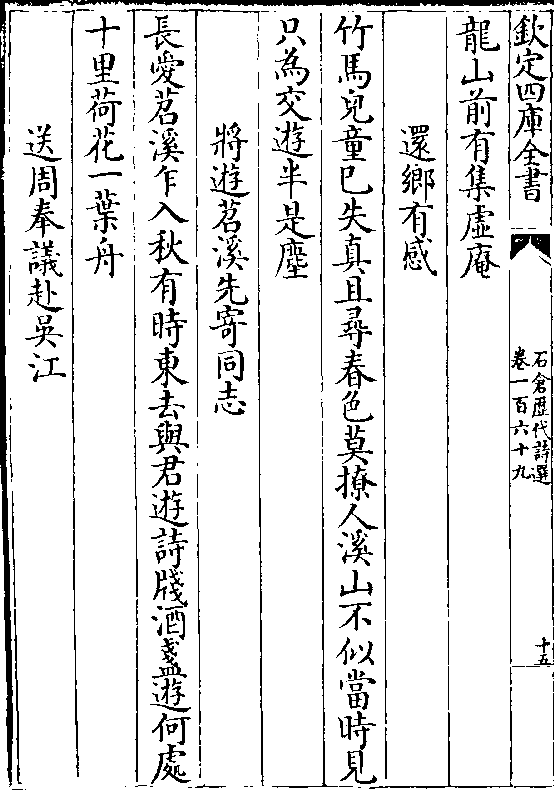 欽定四庫全書
石倉歴代詩選
卷一百六十九
十五
龍山前有集虛庵
還鄉有感
竹馬兒童已失真且尋春色莫撩人溪山不似當時見
只為交遊半是塵
將遊苕溪先寄同志
長愛苕溪乍入秋有時東去與君遊詩牋酒盞遊何處
十里荷花一葉舟
送周奉議赴吳江